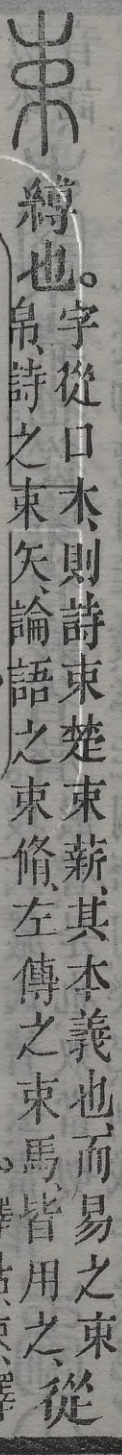 束
縛也。
字從口木、則詩束楚束薪、其本義也、而易之束
帛、詩之束矢、論語之束脩、左傳之束馬、皆用之、從